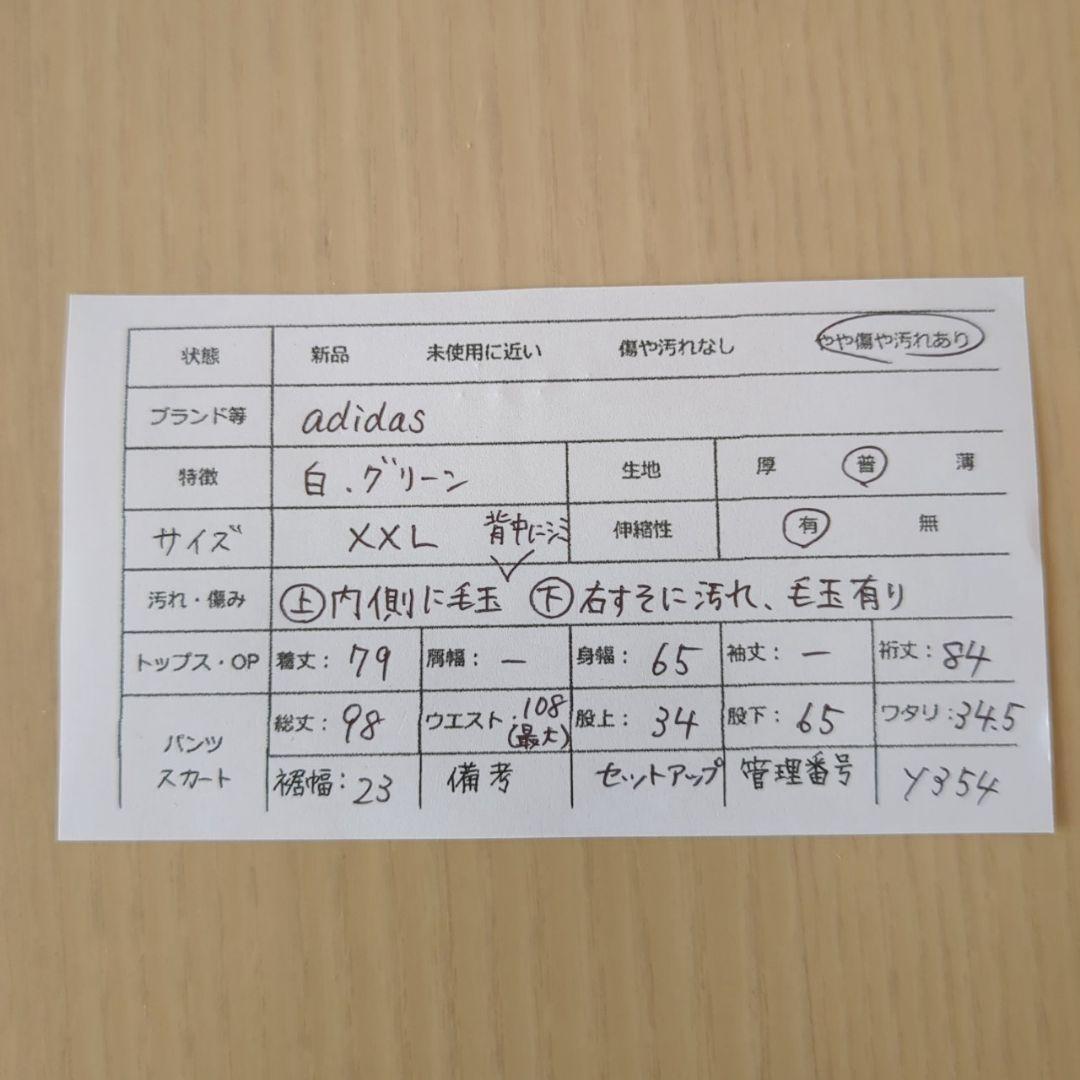 状態 新品 未使用に近い 傷や汚れなし やや傷や汚れあり
ブランド等 adidas
特徴 白、グリーン 生地 厚 普 薄
サイズ XXL 背中にシミ 伸縮性 有 無
汚れ・傷み 上 内側に毛玉 下 右すそに汚れ、毛玉有り
トップス・OP 着丈：79 肩幅：― 身幅：65 袖丈：― 裄丈：84
パンツ スカート 総丈：98 ウエスト：108 (最大) 股上：34 股下：65 ワタリ：34.5
裾幅：23 備考 セットアップ 管理番号 Y354